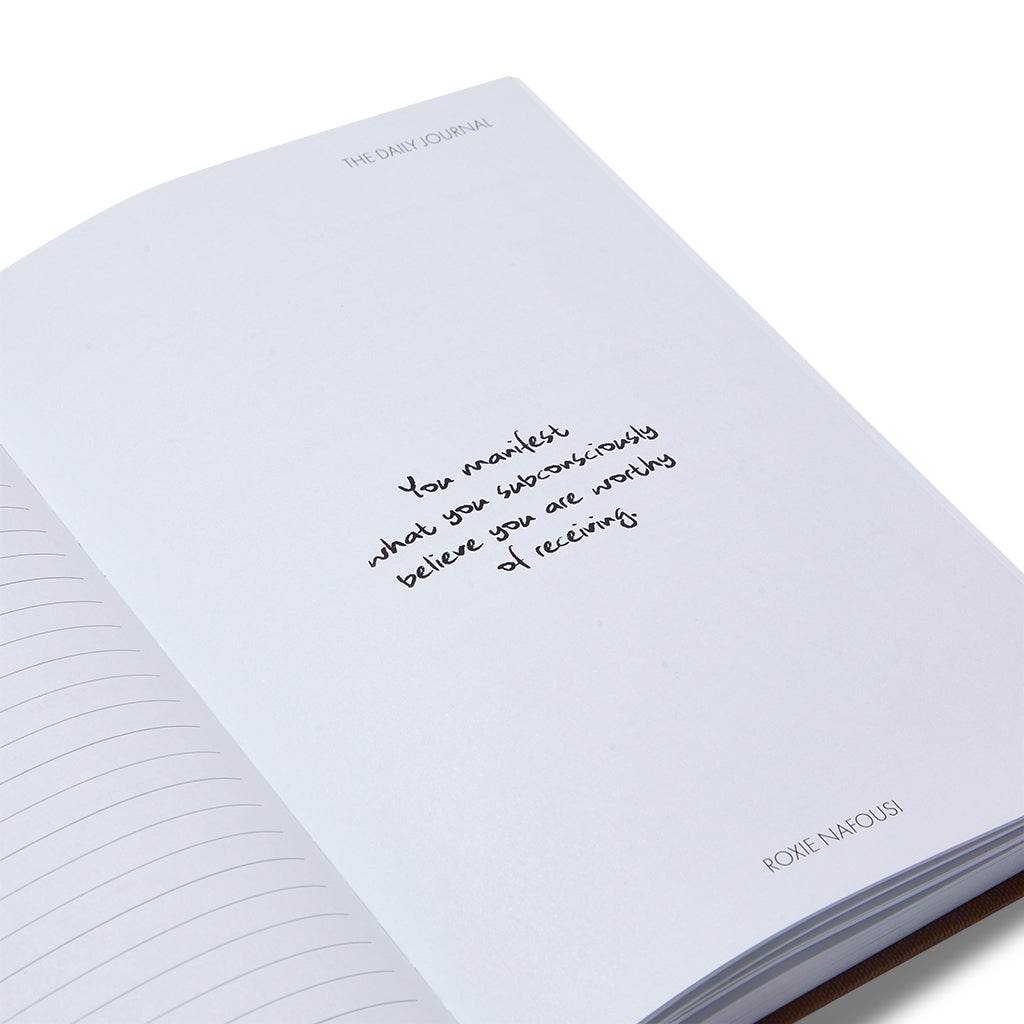 THE DAILY JOURNAL
You manifest
what you subconsciously
believe you are worthy
of receiving.
ROXIE NAFOUSI